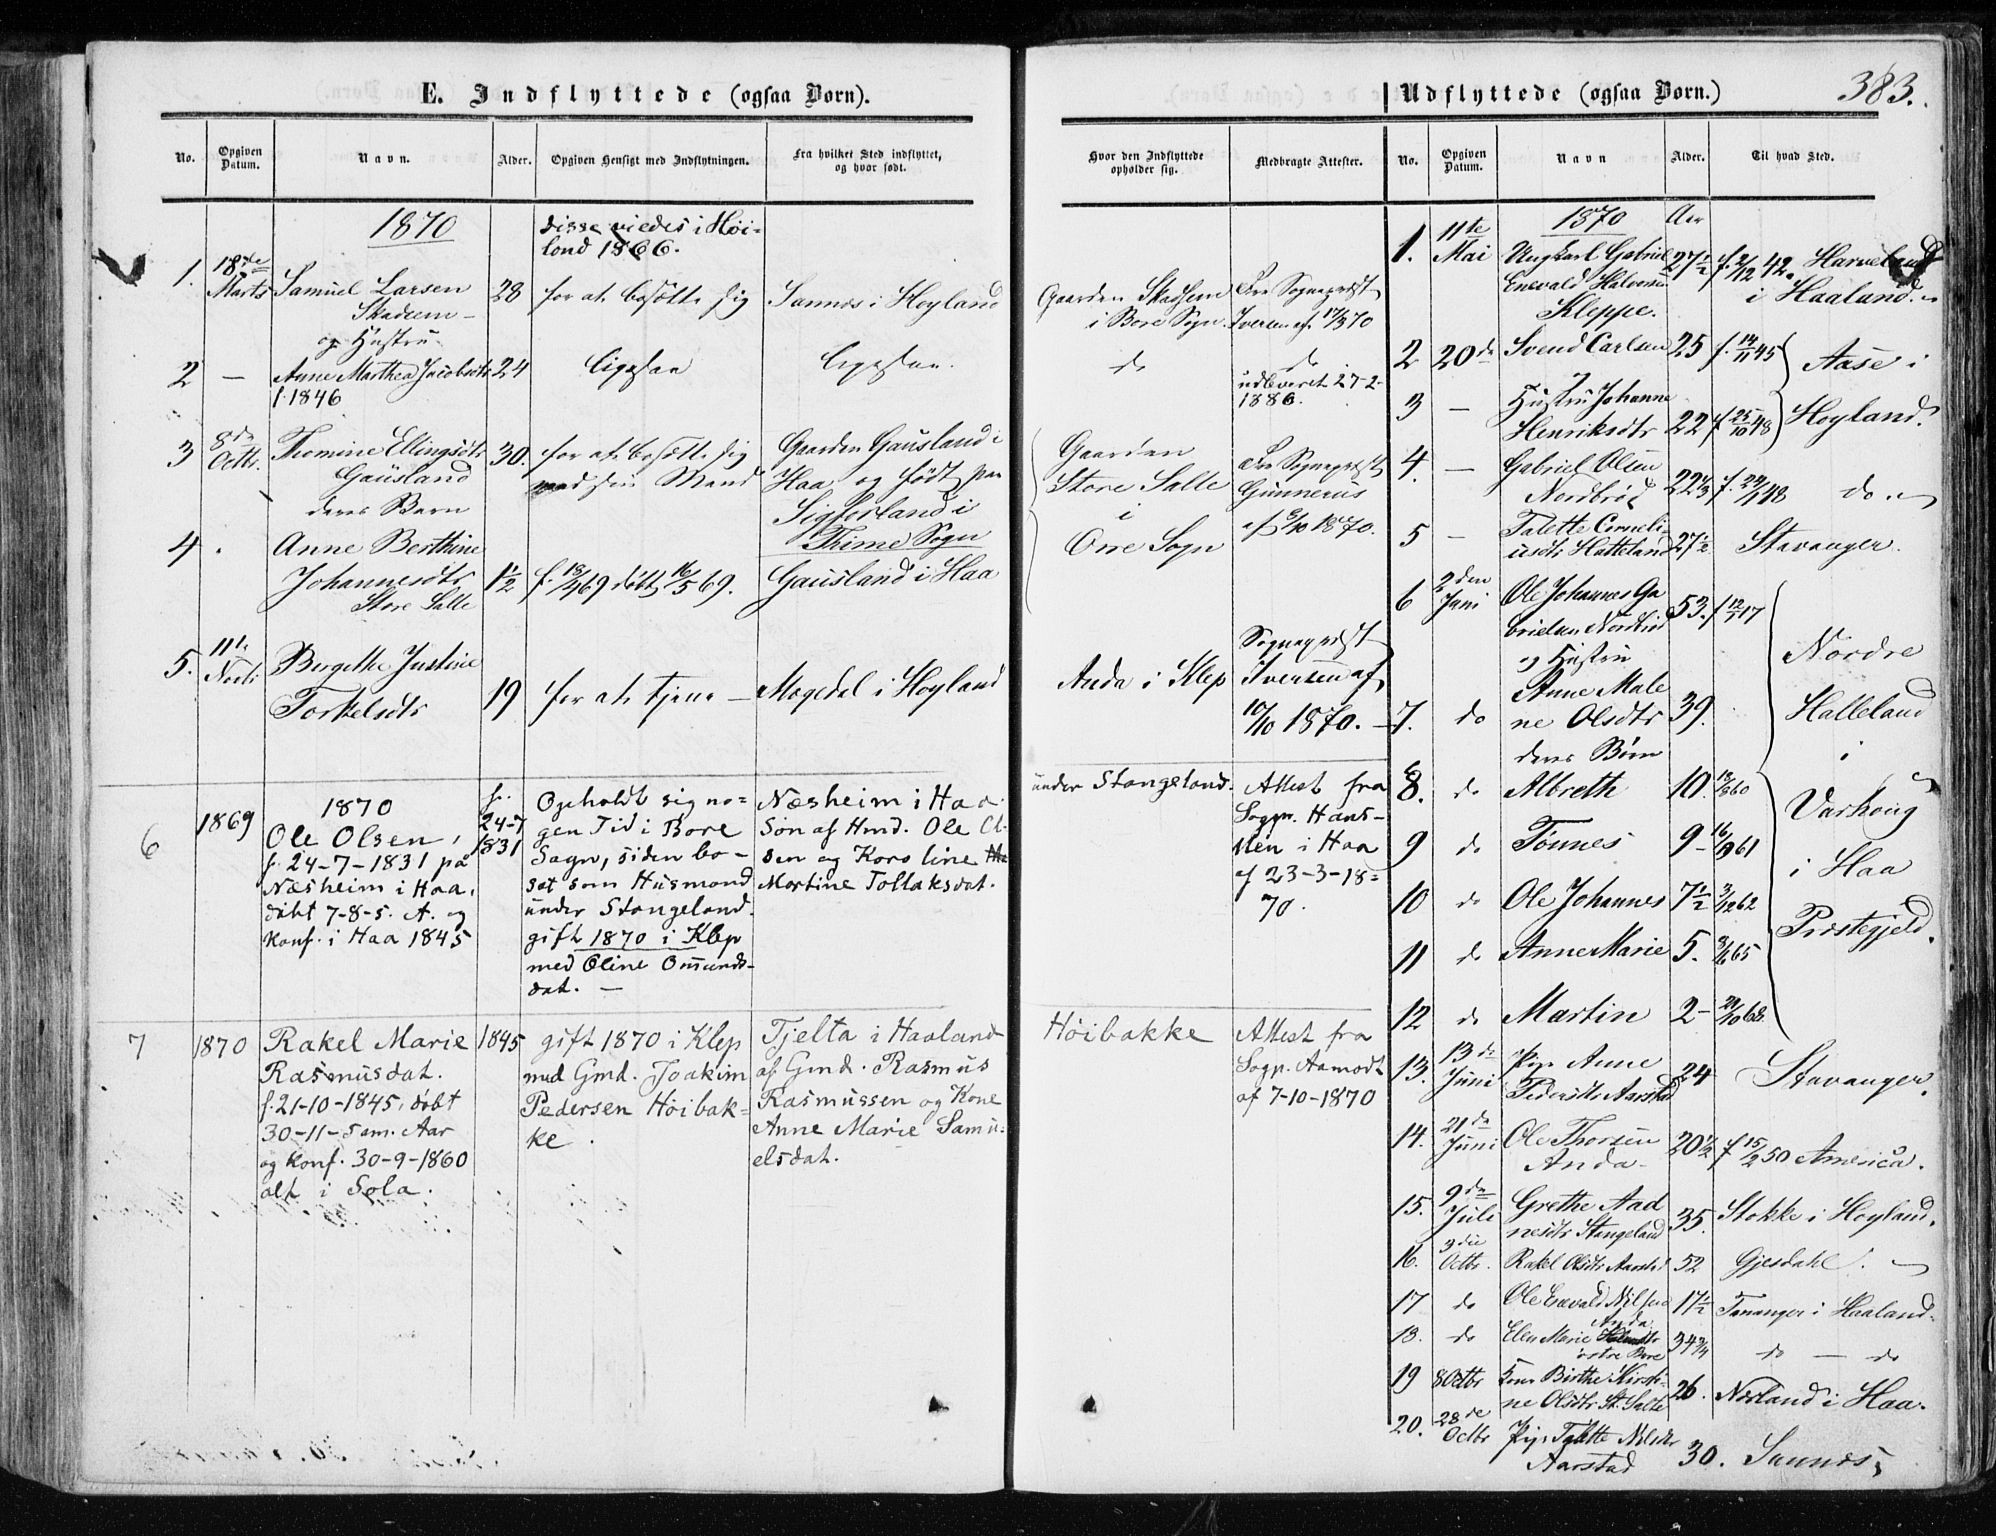 E. Indflyttede (ogsaa Børn).
No.
Opgiven Datum.
Navn.
Alder.
Opgiven Hensigt med Indflytningen.
Fra hvilket Sted indflyttet, og hvor født.
1870
disse viedes i Høi=
land 1866.
1.
18de
Marts
Samuel Larsen
Skadsem
og Hustru
28
for at bosætte sig
Sannæs i Høyland
2
—
Anne Marthea Jacobsdtr
f. 1846
24
ligesaa
ligesaa.
3
8de
Octbr.
Thomine Ellingsdtr
Gausland
deres Barn
30.
for at bosætte sig
med sin Mand
Gaarden Gausland i
Haa og født paa
i
Thime Sogn
4
Anne Berthine
Johannesdtr
Store Salte
1½
f. 13/4 69 døbt 16/5 69.
Gausland i Haa
5.
11te
Bergethe Justine
Torkelsdtr
19
for at tjene —
Møgedal i Høyland
6
1869
1870
Ole Olsen,
f. 24-7-1831 på
Næsheim i Haa,
døbt 7-8-s. A. og
konf. i Haa 1845
f.
24-7
1831
Opholdt sig no=
gen Tid i Bore
Sogn, siden bo-
sat som Husmand
under Stangeland.
gift 1870 i Klep
med Oline Omunds-
dat. —
Næsheim i Haa
Søn af Hmd. Ole Ol-
sen og Karoline
Martine Tollaksdat.
7
1870
Rakel Marie
Rasmusdat.
f. 21-10-1845, døbt
30-11-sam. Aar
og konf. 30-9-1860
alt i Sola.
1845
gift 1870 i Klep
med Gmd. Joakim
Pedersen Høibak-
ke.
Tjelta i Haaland
af Gmd. Rasmus
Rasmussen og Kone
Anne Marie Samu-
elsdat.
Hvor den Indflyttede opholder sig.
Medbragte Attester.
Gaarden Skadsem
i Bore Sogn.
Fra Sognepræst
Iversen af 17/3 70
do
do
udleveret 27-2-
1886.
Gaarden
Store Salte
i
Orre Sogn
Fra Sognepræst
Gunnerus
af 5/10 1870.
Anda i Klep
Sognepræst
Iversen af
10/10 1870.
under Stangeland.
Attest fra
Sogpr. Hans-
sen i Haa
af 23-3-18=
70.
Høibakke
Attest fra
Sogpr. Aamodt
af 7-10-1870
Udflyttede (ogsaa Børn.)
383.
No.
Opgiven Datum.
Navn
Alder.
Til hvad Sted.
1870
Aar
1.
11te
Mai
Ungkarl Gabriel
Enevald Halvorsen
Kleppe.
27½
f. 2/12 42.
Harveland
i Haaland.
2
20de
Svend Carlsen
25
f. 14/11 45
Aase i
3
—
Hustru Johanne
Henriksdtr
22
f. 25/10 48
Høyland.
4.
—
Gabriel Olsen
Nordbrød
do.
5
—
Talette Corneli
usdtr Hatteland
27½
Stavanger.
6
2den
Juni
Ole Johannes Ga
brielsen Nordbrød
og Hustru
53.
f. 12/1 17
Nordre
Halleland
i
Varhoug
i Haa
Præstegjeld.
7.
do
Anne Male
ne Olsdtr
deres Børn
39.
8.
do
Albreth
10.
13/3 60
9
do
Tønnes
9
16/9 61
10
do
Ole Johannes
7½
3/12 62
11
do
Anne Marie
5.
8/6 65
12
do
Martin
2
21/10 68
13.
13de
Juni
Pige Anne
Pedersdtr Aarstad
24
Stavanger.
14.
21de
Juni
Ole Thorsen
Anda
20½
f. 15/2 50
America.
15.
9de
Juli
Grethe Aad
nesdtr Stangeland
35.
Stokke i Høyland.
16.
3die
Octbr.
Rakel Olsdtr Aarstad
52
Gjesdahl.
17
do
Ole Enevald Nilsen
Anda
17½
Tananger i Haaland
18.
do
Elen Marie
østre Bore
34¾
do — do
19
8 Octbr
Kone Birthe Kirsti-
ne Olsdtr St. Salte
26.
Nærland i Haa.
20.
28de
Octbr
Pige Talette Nilsdtr
Aarstad
30.
Sannæs